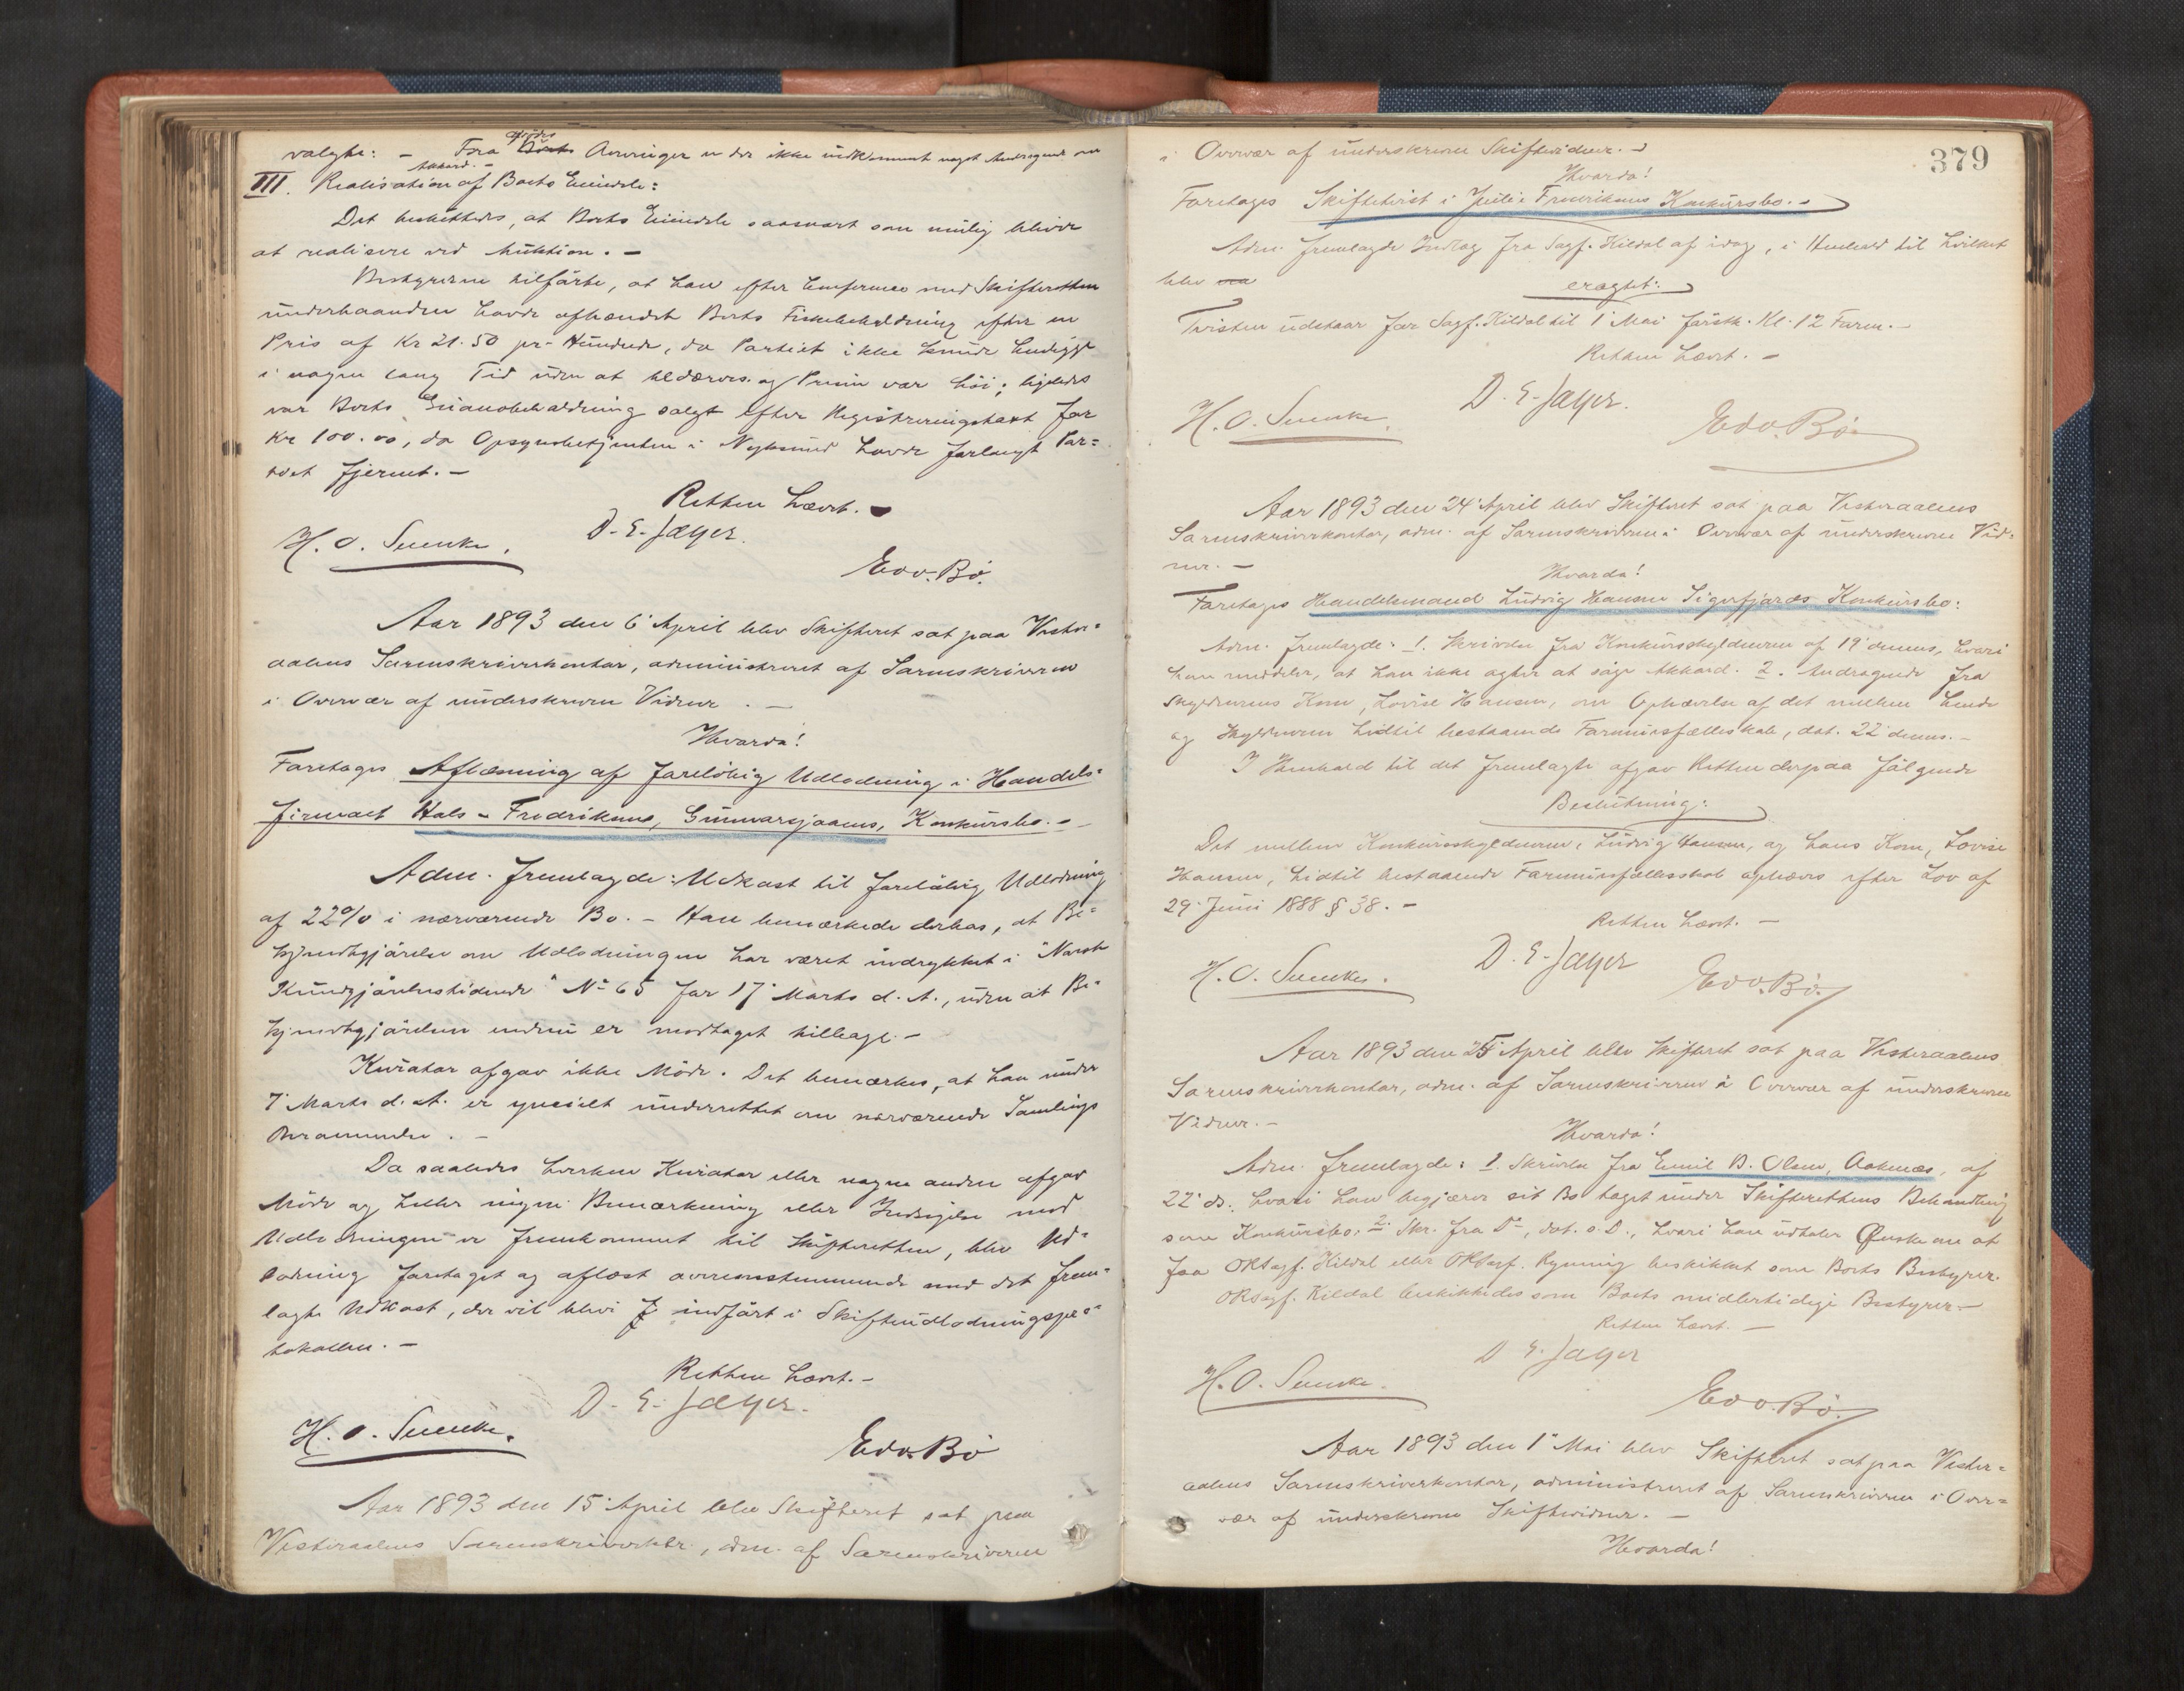 valgte: – Fra Arvinger er der ikke indkommet noget Andragende om
Akkord. –
III. Realisation af Boets Eiendele:
Det besluttedes, at Boets Eiendele saasnart som mulig bliver
at realisere ved Auktion. –
Bestyreren tilførte, at han efter Conference med Skifteretten
underhaanden havde afhændet Boets Fiskebeholdning efter en
Pris af Kr 21.50 pr. Hundrede, da Partiet ikke kunde henligge
i nogen lang Tid uden at bedærves og Prisen var høi; ligeledes
var Boets Guanobeholdning solgt efter Registreringstaxt for
Kr 100.00, da Opsynsbetjenten i Nyksund havde forlangt Par=
tiet fjernet. –
Retten hævet. –
H. O. Suenke. D. E. Jæger.
Edv. Bö.
Aar 1893 den 6' April blev Skifteret sat paa Vester=
aalens Sorenskriverkontor, administreret af Sorenskriveren
i Overvær af underskrevne Vidner. –
Hvorda!
Foretages Aflæsning af foreløbig Udlodning i Handels=
firmaet Hals – Fredriksens, Gunnarsjaaens, Konkursbo. –
Adm. fremlagde: Udkast til foreløbig Udlodning
af 22% i nærværende Bo. – Han bemærkede derhos, at Be=
kjendtgjørelse om Udlodningen har været indrykket i "Norsk
Kundgjørelsestidende" No 65 for 17' Marts d. A., uden at Be=
kjendtgjørelsen endnu er modtaget tilbage. –
Kurator afgav ikke Møde. Det bemærkes, at han under
7' Marts d. A. er specielt underrettet om nærværende Samlings
Berammelse. –
Da saaledes hverken Kurator eller nogen anden afgav
Møde og heller ingen Bemærkning eller Indsigelse mod
Udlodningen er fremkommet til Skifteretten, blev Ud=
lodning foretaget og aflæst overensstemmende med det frem=
lagte Udkast, der vil blive indført i Skifteudlodningspro=
tokollen. –
Retten hævet. –
D. E. Jæger.
H. O. Suenke. Edv. Bö
Aar 1893 den 15' April blev Skifteret sat paa
Vesteraalens Sorenskriverktr., adm. af Sorenskriveren
379
i Overvær af underskrevne Skiftevidner. –
Hvorda!
Foretages Skiftetvist i Julie Fredriksens Konkursbo. –
Adm. fremlagde Indlæg fra Sagf. Kildal af idag, i Henhold til hvilket
blev
eragtet:
Tvisten udstaar for Sagf. Kildal til 1' Mai førstk. Kl. 12 Form. –
Retten hævet. –
H. O. Suenke. D. E. Jæger. Edv. Bö
Aar 1893 den 24' April blev Skifteret sat paa Vesteraalens
Sorenskriverkontor, adm. af Sorenskriveren i Overvær af underskrevne Vid=
ner. –
Hvorda!
Foretages Handelsmand Ludvig Hansen Sigerfjords Konkursbo:
Adm. fremlagde: 1. Skrivelse fra Konkursskyldneren af 19' dennes, hvori
han meddeler, at han ikke agter at søge Akkord. 2. Andragende fra
Skyldnerens Kone, Lovise Hansen, om Ophævelse af det mellem hende
og Skyldneren hidtil bestaaende Formuesfælleskab, dat. 22' dennes. –
I Henhold til det fremlagte afgav Retten derpaa følgende
Beslutning:
Det mellem Konkursskyldneren, Ludvig Hansen, og hans Kone, Lovise
Hansen, hidtil bestaaende Formuesfællesskab ophæves efter Lov af
29' Juni 1888 § 38. –
Retten hævet. –
H. O. Suenke. D. E. Jæger Edv. Bö.
Aar 1893 den 25' April blev Skifteret sat paa Vesteraalens
Sorenskriverkontor, adm. af Sorenskriveren i Overvær af underskrevne
Vidner. –
Hvorda!
Adm. fremlagde: 1. Skrivelse fra Emil B. Olsen, Aaknæs, af
22' ds., hvori han begjærer sit Bo taget under Skifterettens Behandling
som Konkursbo. 2. Skr. fra Do, dat. s. D., hvori han udtaler Ønske om at
faa ORSagf. Kildal eller ORSagf. Rynning beskikket som Boets Bestyrer.
ORSagf. Kildal beskikkedes som Boets midlertidige Bestyrer. –
Retten hævet. –
D E. Jæger
H. O. Suenke. Edv. Bö.
Aar 1893 den 1' Mai blev Skifteret sat paa Vester=
aalens Sorenskriverkontor, administreret af Sorenskriveren i Over=
vær af underskrevne Skiftevidner. –
Hvorda!